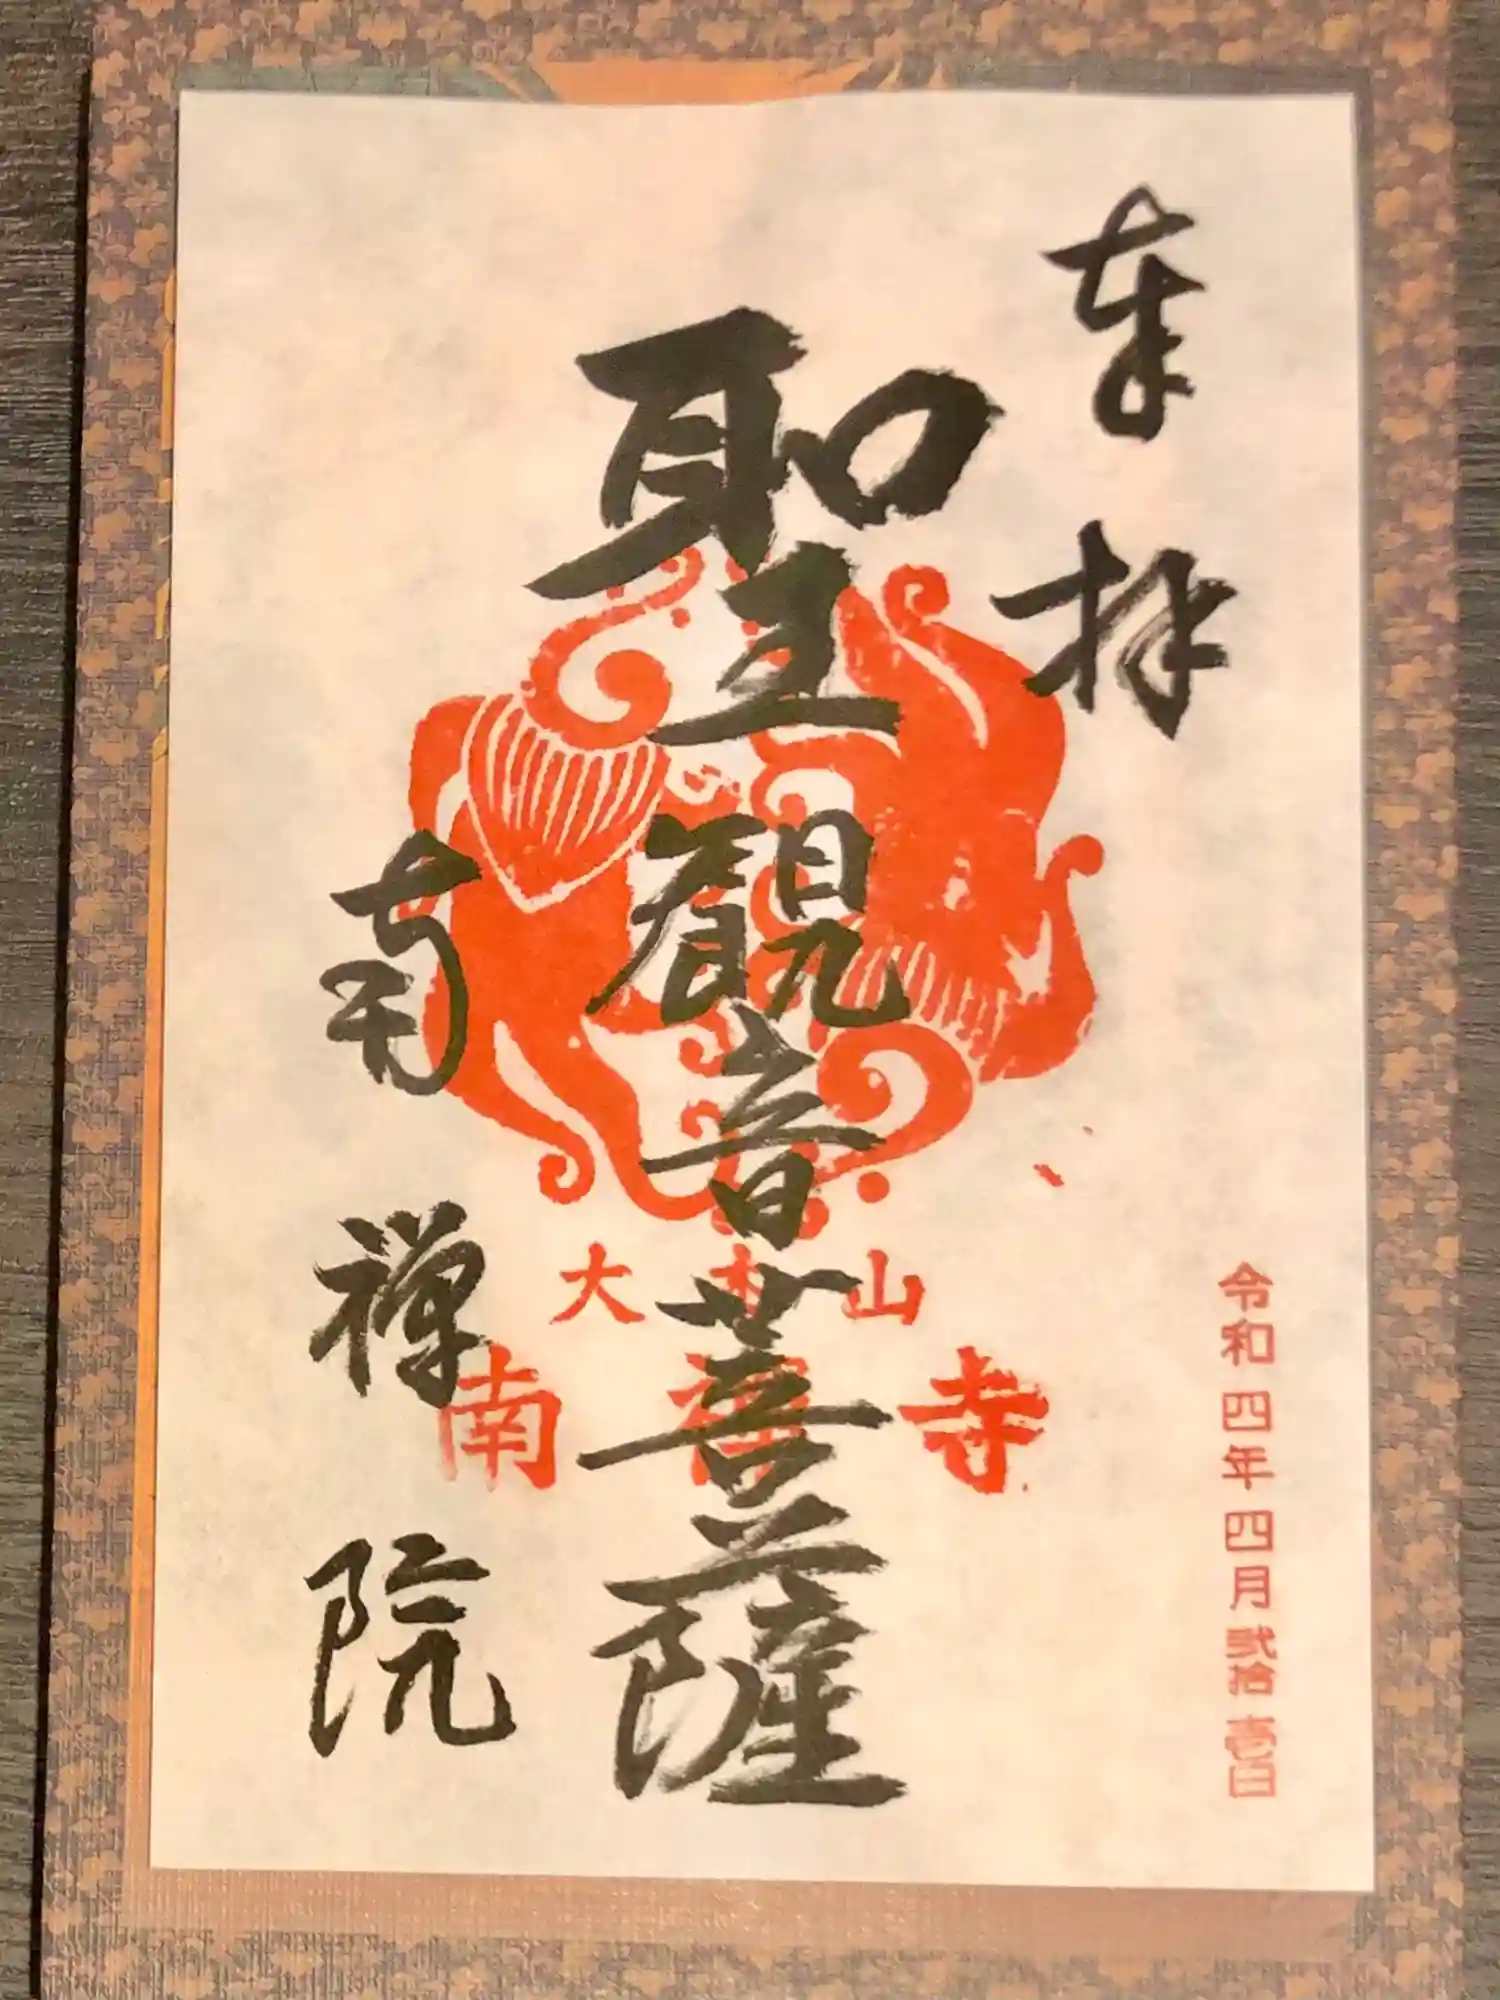 奉拝
令和四年四月弐拾壱日
聖観音菩薩
大本山
南禅寺
南禅院